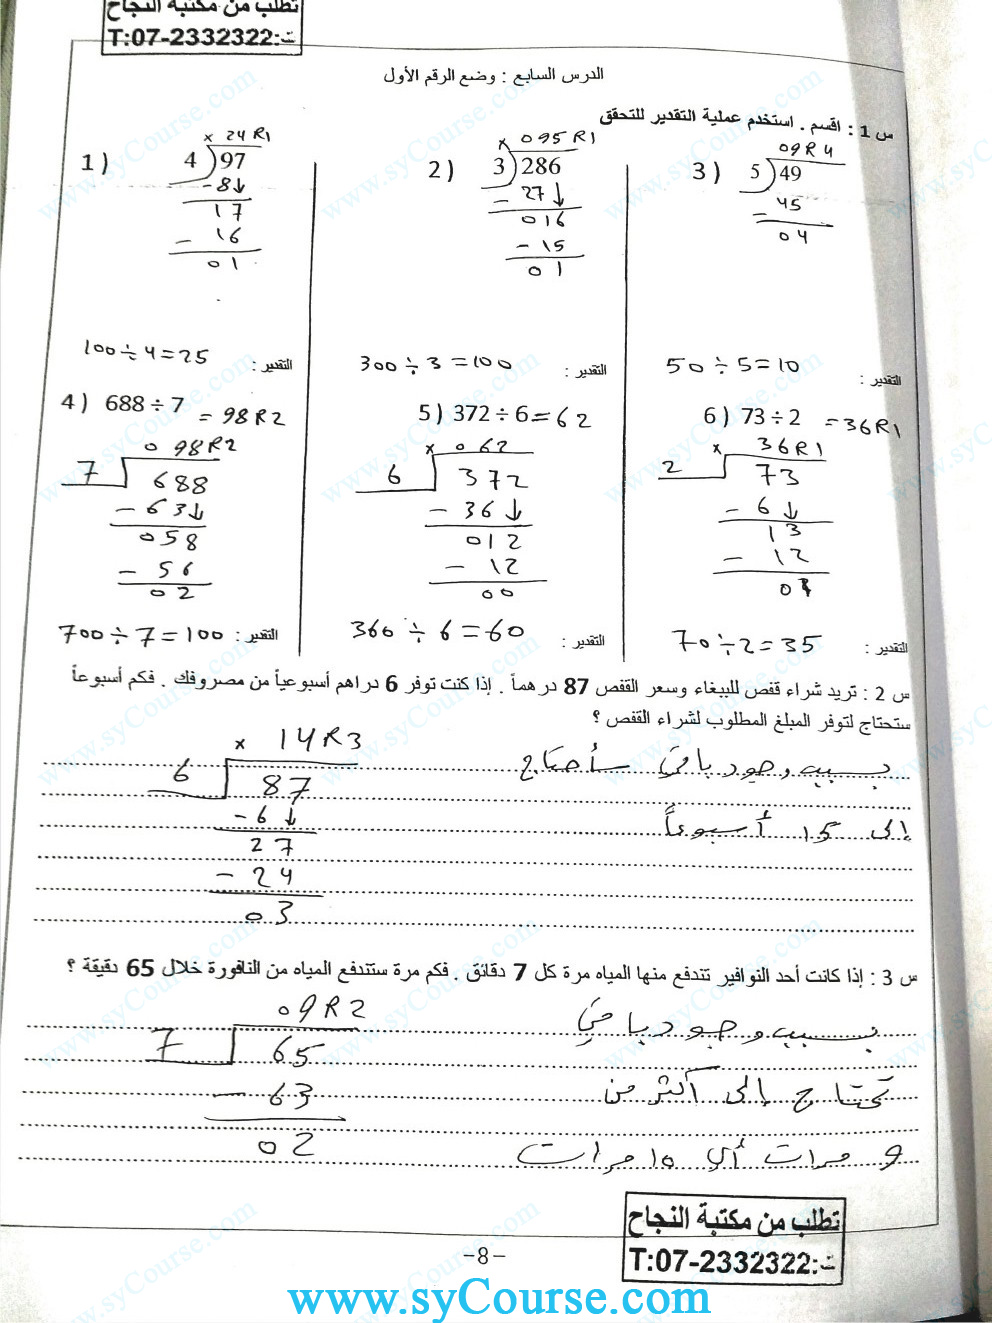 تطلب من مكتبة النجاح
ت:T:07-2332322
الدرس السابع : وضع الرقم الأول
س 1 : اقسم . استخدم عملية التقدير للتحقق
1)
× 24 R1
4 97
- 8↓
17
- 16
01
التقدير : 100 ÷ 4 = 25
2)
× 095 R1
3 286
- 27↓
016
- 15
01
التقدير : 300 ÷ 3 = 100
3)
09 R 4
5 49
- 45
04
التقدير : 50 ÷ 5 = 10
4) 688 ÷ 7 = 98 R2
0 98 R2
7 688
- 63↓
058
- 56
02
التقدير : 700 ÷ 7 = 100
5) 372 ÷ 6 = 62
× 062
6 372
- 36↓
012
- 12
00
التقدير : 360 ÷ 6 = 60
6) 73 ÷ 2 = 36R1
× 36R1
2 73
- 6↓
13
- 12
01
التقدير : 70 ÷ 2 = 35
س 2 : تريد شراء قفص للببغاء وسعر القفص 87 درهماً . إذا كنت توفر 6 دراهم أسبوعياً من مصروفك . فكم أسبوعاً
ستحتاج لتوفر المبلغ المطلوب لشراء القفص ؟
× 14 R 3
6 87
- 6↓
27
- 24
03
بسبب وجود باقي سأحتاج
إلى 15 أسبوعاً
س 3 : إذا كانت أحد النوافير تتدفع منها المياه مرة كل 7 دقائق . فكم مرة ستتدفع المياه من النافورة خلال 65 دقيقة ؟
09 R 2
7 65
- 63
02
بسبب وجود باقي
تحتاج إلى أكثر من
9 مرات أي 10 مرات
تطلب من مكتبة النجاح
ت:T:07-2332322
-8-
www.syCourse.com